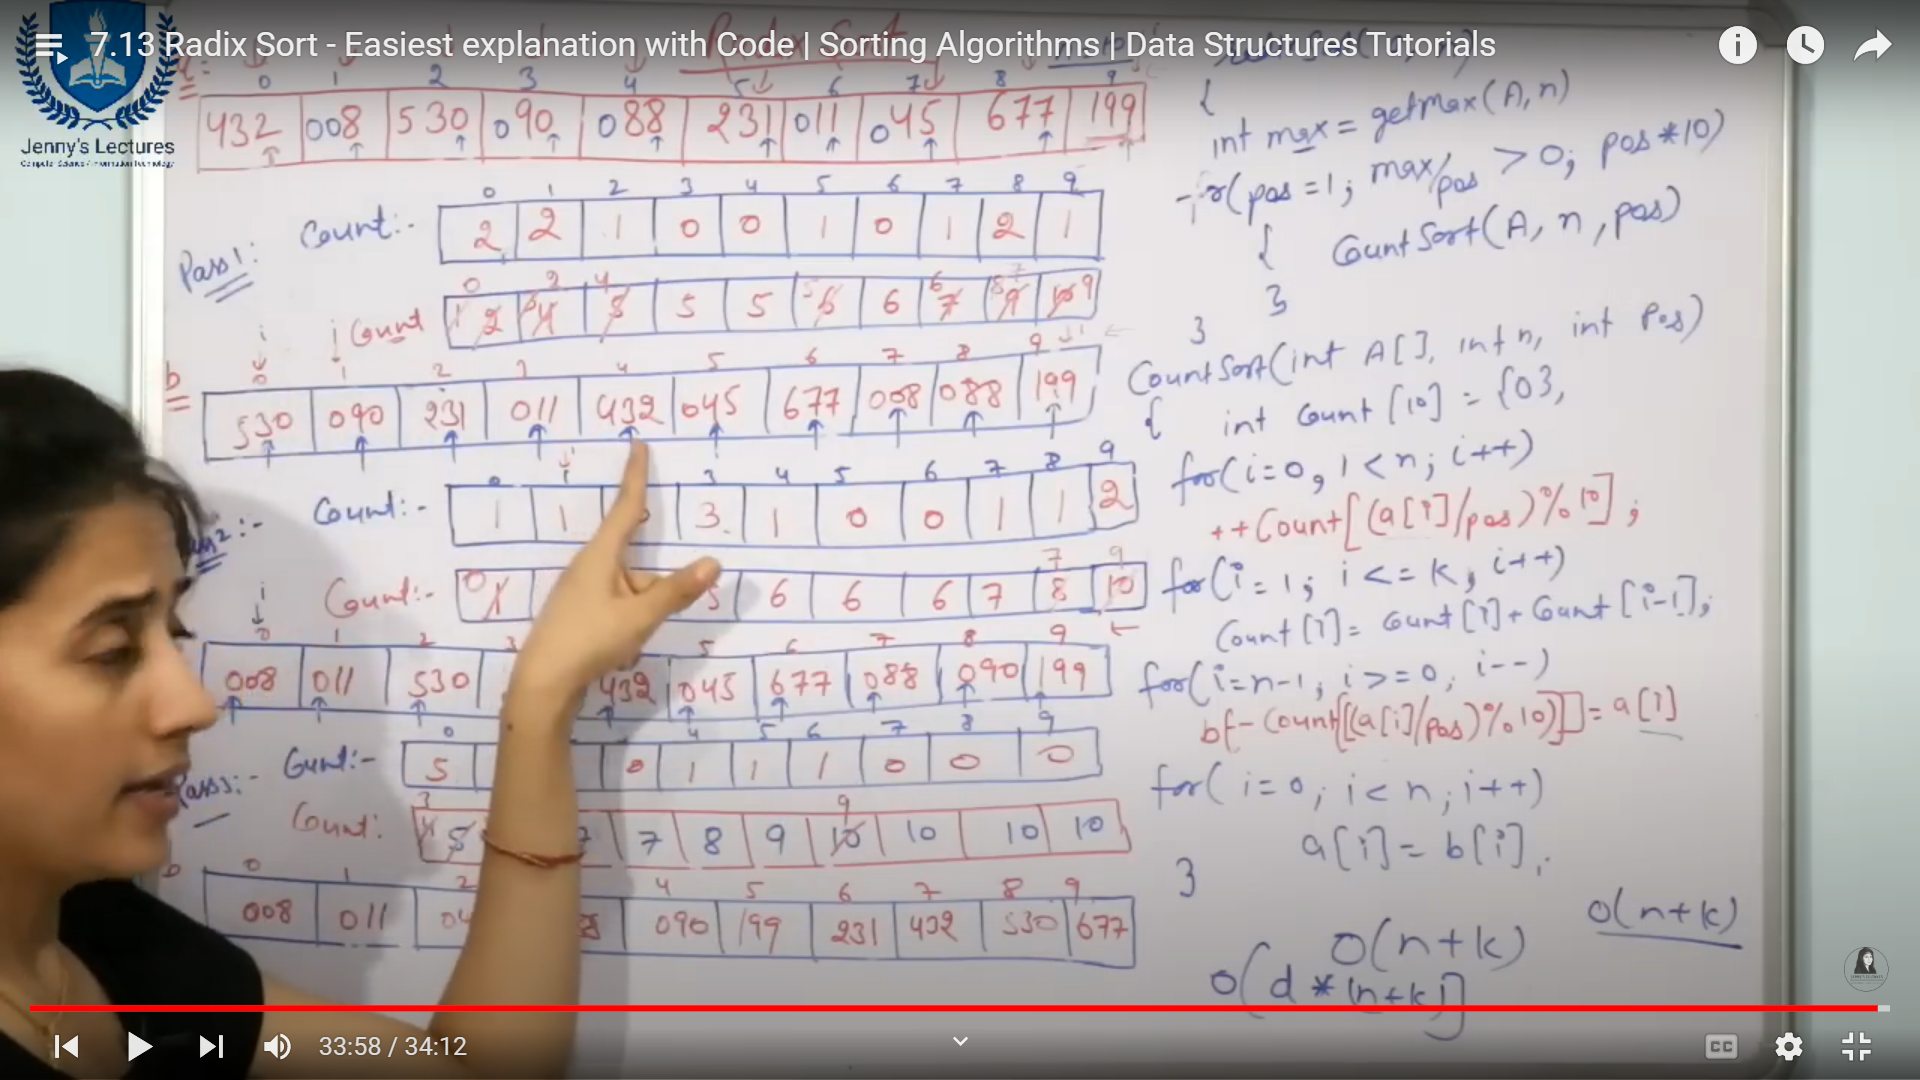 7.13 Radix Sort - Easiest explanation with Code | Sorting Algorithms | Data Structures Tutorials
Jenny's Lectures
Computer Science / Information Technology
Radix Sort
0 1 2 3 4 5 6 7 8 9
432 008 530 090 088 231 011 045 677 199
0 1 2 3 4 5 6 7 8 9
Pass1: Count:- 2 2 1 0 0 1 0 1 2 1
Count 5 5 6
i j
b
0 1 2 3 4 5 6 7 8 9
530 090 231 011 432 045 677 008 088 199
0 1 3 4 5 6 7 8 9
Count:- 1 1 3 1 0 0 1 1 2
Count:- 6 6 6 7 8 10
i
0 1 2 3 5 6 7 8 9
008 011 530 432 045 677 088 090 199
0 4 5 6 7 8 9
Pass3:- Count:- 5 0 1 1 1 0 0 0
Count: 7 8 9 10 10 10 10
b
0 1 2 4 5 6 7 8 9
008 011 04 090 199 231 432 530 677
{
int max = getMax(A, n)
for(pos=1; max/pos > 0; pos*10)
{ CountSort(A, n, pos)
}
}
CountSort(int A[], int n, int pos)
{ int Count [10] = {0},
for(i=0, i<n; i++)
++Count[(a[i]/pos)%10];
for(i=1; i<=k, i++)
Count[i]= Count[i]+Count[i-1];
for(i=n-1; i>=0, i--)
b[-Count[(a[i]/pos)%10)]]=a[i]
for(i=0; i<n; i++)
a[i]=b[i];
}
O(n+k)
O(n+k)
O(d*(n+k))
33:58 / 34:12
CC